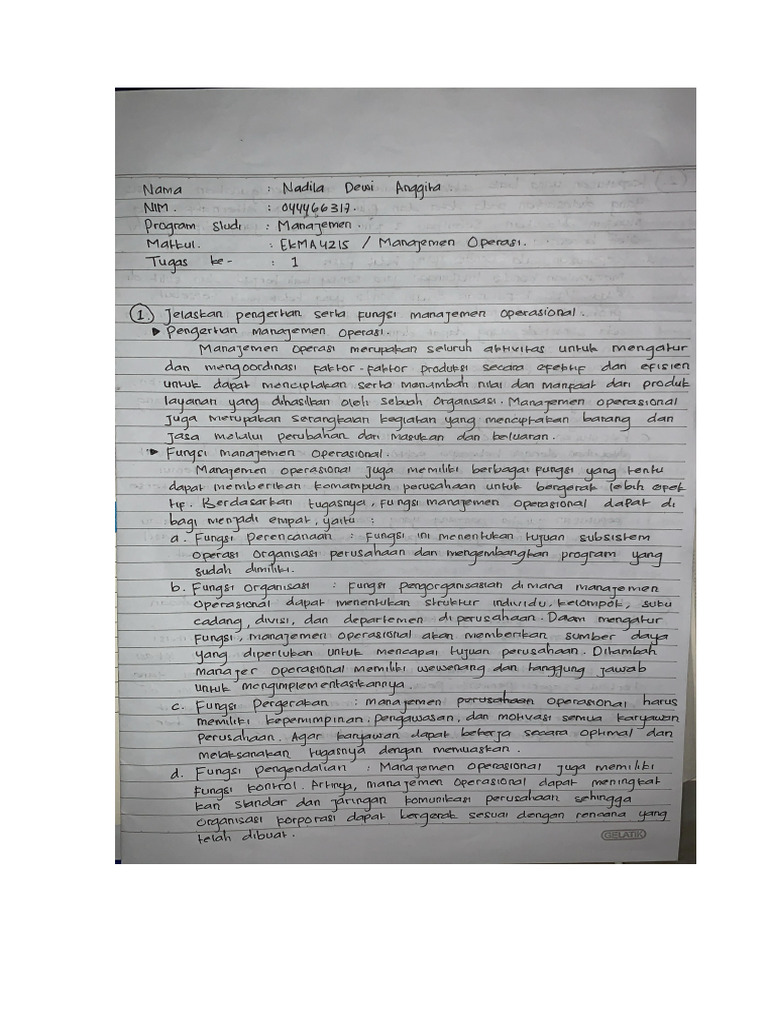 Nama : Nadila Dewi Anggita.
NIM. : 044466317.
Program Studi : Manajemen.
Matkul. : EKMA4215 / Manajemen Operasi.
Tugas ke- : 1
1. Jelaskan pengertian serta fungsi manajemen operasional.
▶ Pengertian manajemen operasi.
Manajemen operasi merupakan seluruh aktivitas untuk mengatur
dan mengoordinasi faktor-faktor produksi secara efektif dan efisien
untuk dapat menciptakan serta menambah nilai dan manfaat dari produk
layanan yang dihasilkan oleh sebuah organisasi. Manajemen operasional
juga merupakan serangkaian kegiatan yang menciptakan barang dan
jasa melalui perubahan dari masukan dan keluaran.
▶ Fungsi manajemen operasional.
Manajemen operasional juga memiliki berbagai fungsi yang tentu
dapat memberikan kemampuan perusahaan untuk bergerak lebih efek
tif. Berdasarkan tugasnya, fungsi manajemen operasional dapat di
bagi menjadi empat, yaitu :
a. Fungsi Perencanaan : Fungsi ini menentukan tujuan subsistem
operasi organisasi perusahaan dan mengembangkan program yang
sudah dimiliki.
b. Fungsi organisasi : Fungsi pengorganisasian dimana manajemen
operasional dapat menentukan struktur individu, kelompok, suku
cadang, divisi, dan departemen di perusahaan. Daam mengatur
fungsi, manajemen operasional akan memberikan sumber daya
yang diperlukan untuk mencapai tujuan perusahaan. Ditambah
manajer operasional memiliki wewenang dan tanggung jawab
untuk mengimplementasikannya.
c. Fungsi Pergerakan : manajemen perusahaan operasional harus
memiliki kepemimpinan, pengawasan, dan motivasi semua karyawan
perusahaan. Agar karyawan dapat bekerja secara optimal dan
melaksanakan tugasnya dengan memuaskan.
d. Fungsi Pengendalian : Manajemen operasional juga memiliki
fungsi kontrol. Artinya, manajemen operasional dapat meningkat
kan standar dan jaringan komunikasi perusahaan sehingga
organisasi korporasi dapat bergerak sesuai dengan rencana yang
telah dibuat.
GELATIK